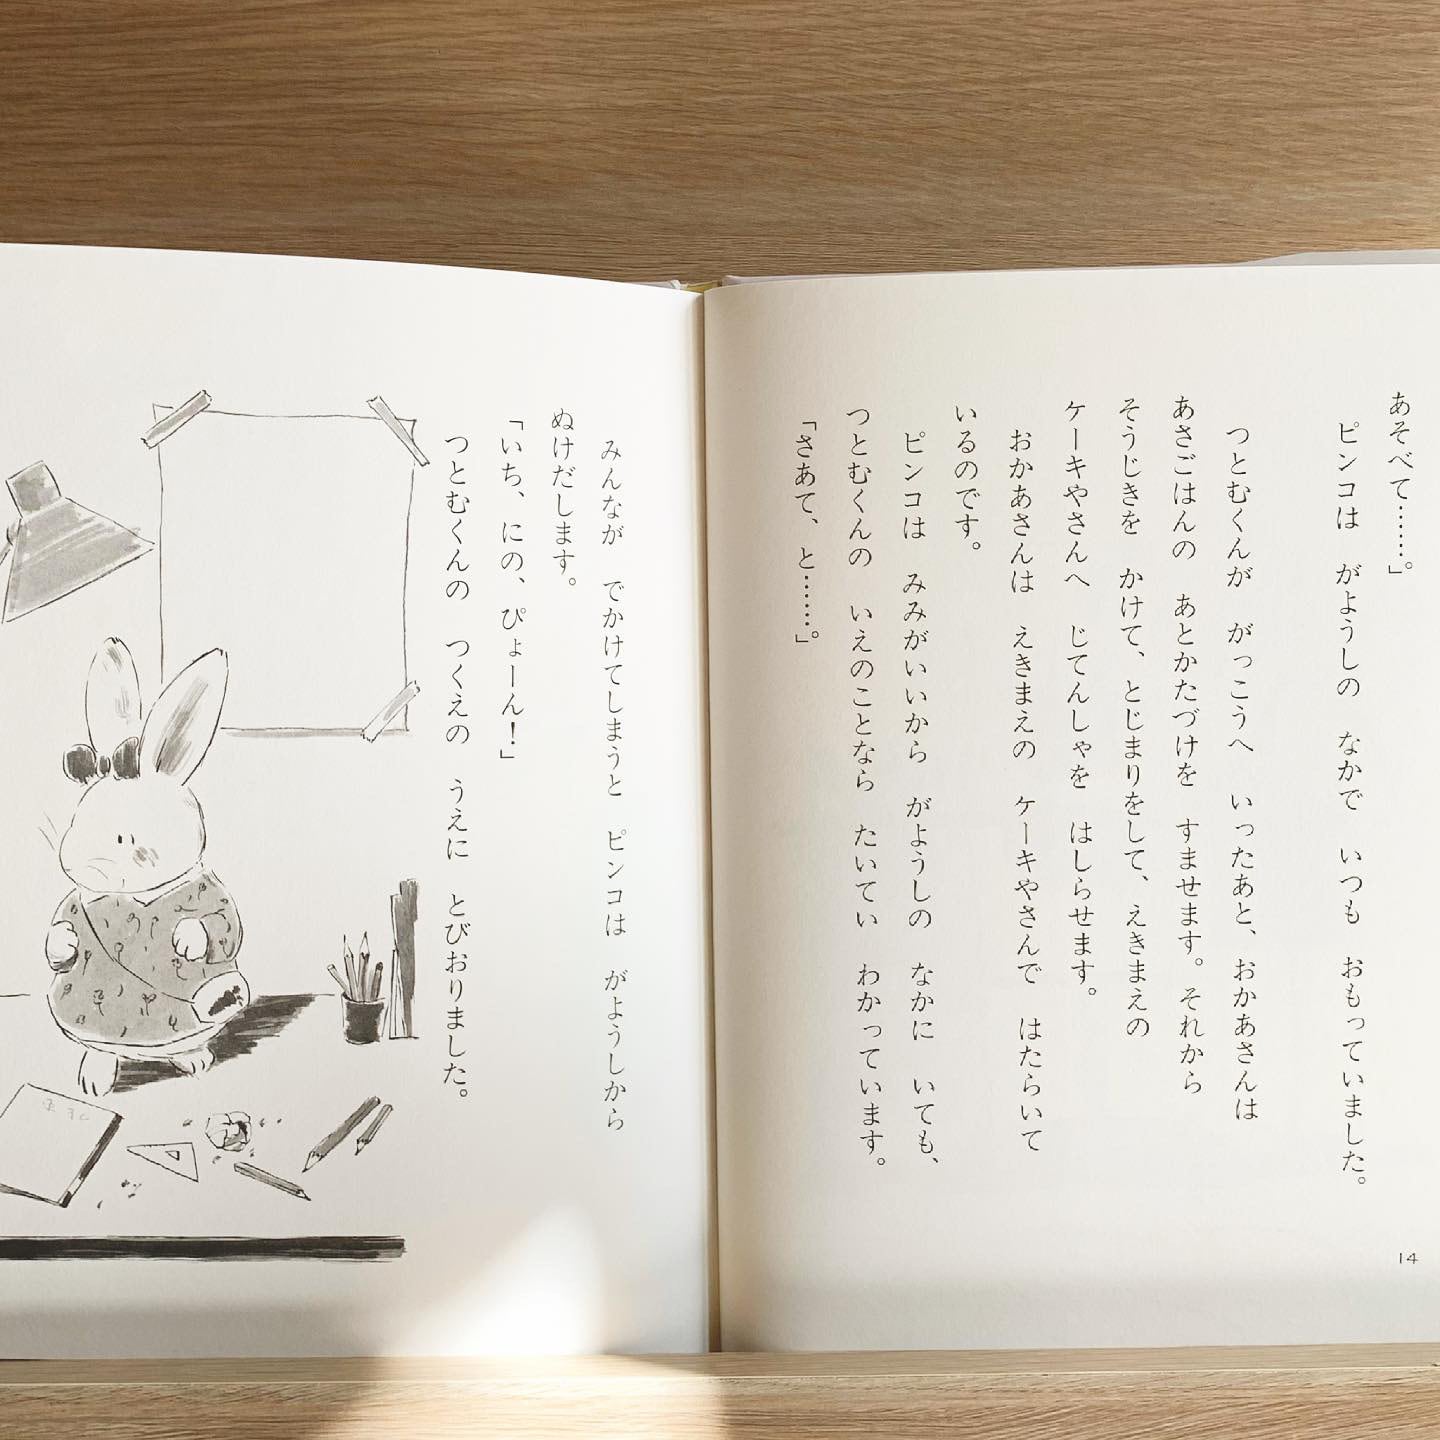 あそべて……。」
ピンコは　がようしの　なかで　いつも　おもっていました。
つとむくんが　がっこうへ　いったあと、おかあさんは
あさごはんの　あとかたづけを　すませます。それから
そうじきを　かけて、とじまりをして、えきまえの
ケーキやさんへ　じてんしゃを　はしらせます。
おかあさんは　えきまえの　ケーキやさんで　はたらいて
いるのです。
ピンコは　みみがいいから　がようしの　なかに　いても、
つとむくんの　いえのことなら　たいてい　わかっています。
「さあて、と……。」
14
みんなが　でかけてしまうと　ピンコは　がようしから
ぬけだします。
「いち、にの、ぴょーん！」
つとむくんの　つくえの　うえに　とびおりました。